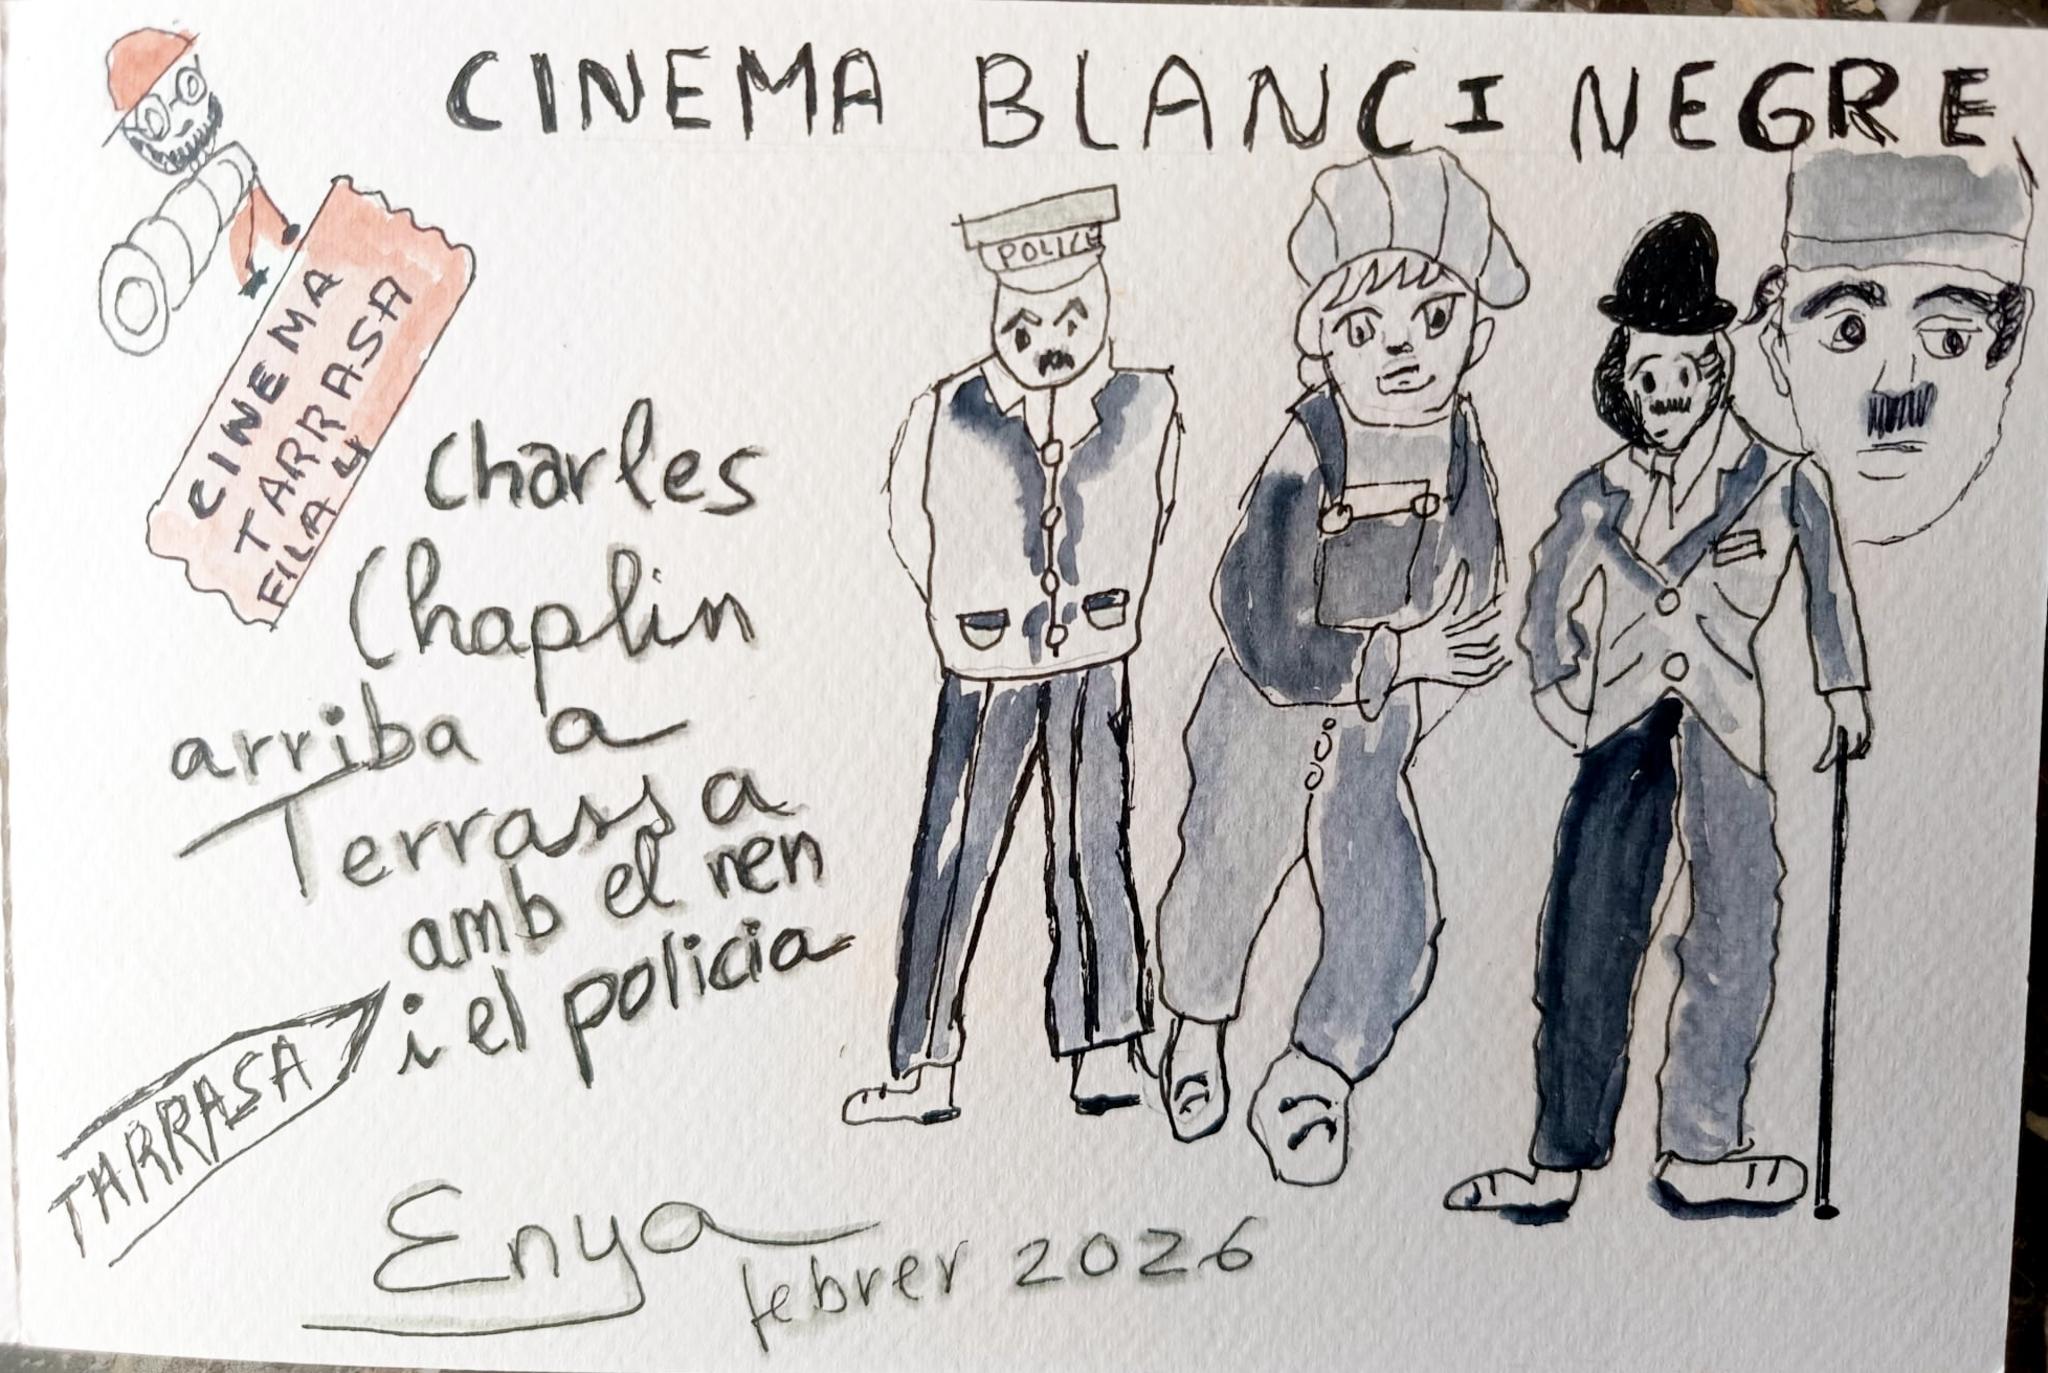 CINEMA BLANC I NEGRE
CINEMA
TARRASA
FILA 4
POLICE
Charles
Chaplin
arriba a
Terrassa
amb el nen
i el policia
TARRASA
Enya
febrer 2026